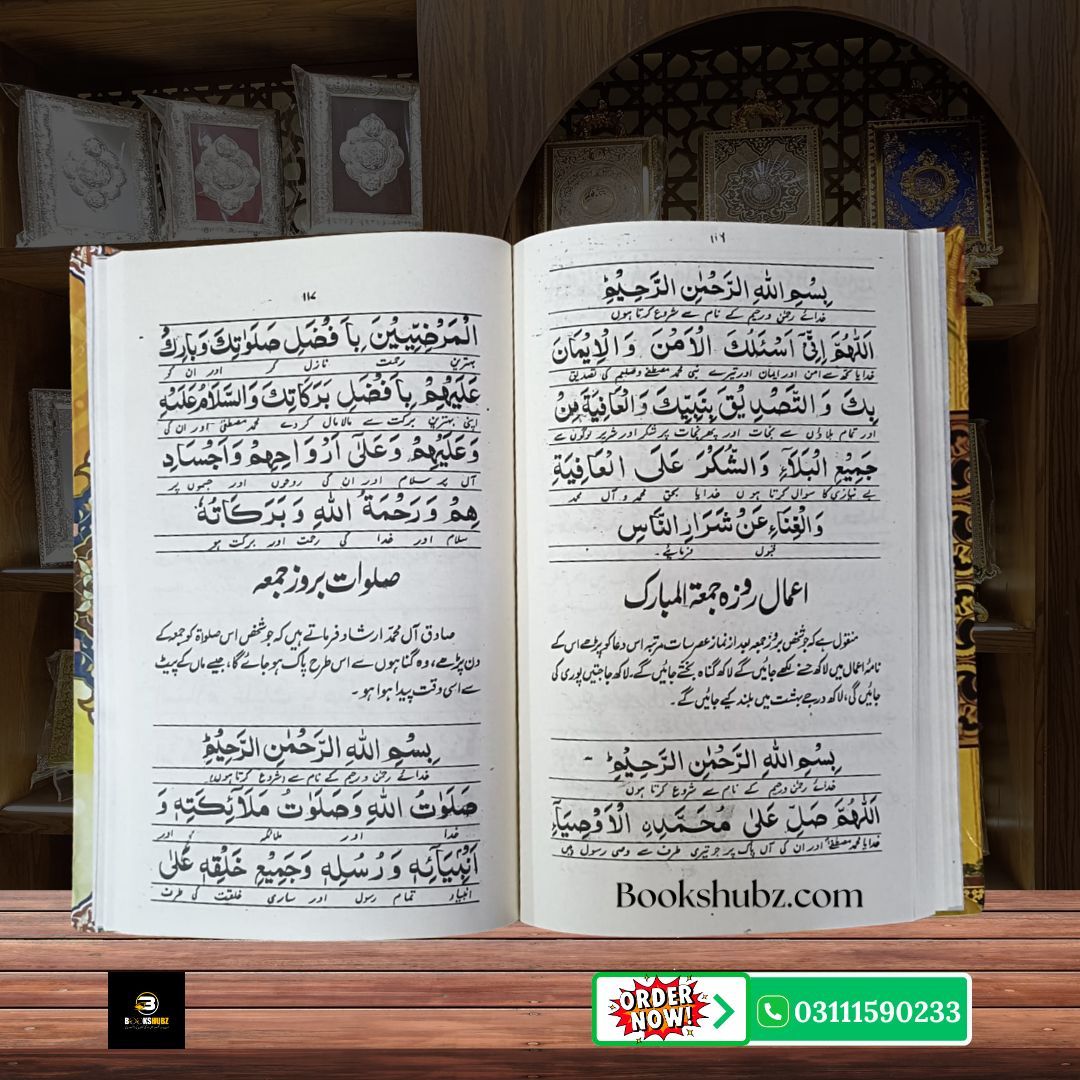 ١١٦
بِسْمِ اللهِ الرَّحْمٰنِ الرَّحِيْمِ
خدائے رحمٰن و رحیم کے نام سے شروع کرتا ہوں
اَللّٰهُمَّ اِنِّیْٓ اَسْئَلُكَ الْاَمْنَ وَالْاِيْمَانَ
خدایا تجھ سے امن اور ایمان اور تیرے نبی محمد مصطفےٰ کی تصدیق
بِكَ وَالتَّصْدِيْقَ بِنَبِيِّكَ وَالْعَافِيَةَ مِنْ
اور تمام بلاؤں سے نجات اور پھر نجات پر شکر اور شریر لوگوں سے
جَمِيْعِ الْبَلَآءِ وَالشُّكْرَ عَلَى الْعَافِيَةِ
بے نیازی کا سوال کرتا ہوں خدایا بحق محمد و آل محمد
وَالْغِنَاءِ عَنْ شَرَارِ النَّاسِ
قبول فرمائیے۔
اعمال روزہ جمعۃ المبارک
منقول ہے کہ جو شخص بروز جمعہ بعد از نماز عصر سات مرتبہ اس دعا کو پڑھے اس کے
نامۂ اعمال میں لاکھ حسنے لکھے جائیں گے لاکھ گناہ بخشے جائیں گے، لاکھ حاجتیں پوری کی
جائیں گی، لاکھ درجے بہشت میں بلند کیے جائیں گے۔
بِسْمِ اللهِ الرَّحْمٰنِ الرَّحِيْمِ
خدائے رحمٰن و رحیم کے نام سے شروع کرتا ہوں
اَللّٰهُمَّ صَلِّ عَلٰى مُحَمَّدِنِ الْاَوْصِيَآءِ
خدایا محمد مصطفےٰ اور ان کی آل پاک پر جو تیری طرف سے وصی رسول ہیں
Bookshubz.com
١١٧
الْمَرْضِيِّيْنَ بِاَفْضَلِ صَلَوٰتِكَ وَبَارِكْ
بہترین رحمت نازل کر اور ان کو
عَلَيْهِمْ بِاَفْضَلِ بَرَكَاتِكَ وَالسَّلَامُ عَلَيْهِ
اپنی بہترین برکت سے مالا مال کر دے محمد مصطفیٰ اور ان کی
وَعَلَيْهِمْ وَعَلٰٓى اَرْوَاحِهِمْ وَاَجْسَادِ
آل پر سلام اور ان کی روحوں اور جسموں پر
هِمْ وَرَحْمَةُ اللهِ وَبَرَكَاتُهٗ
سلام اور خدا کی رحمت اور برکت ہو
صلوات بروز جمعہ
صادق آل محمدؐ ارشاد فرماتے ہیں کہ جو شخص اس صلواۃ کو جمعہ کے
دن پڑھے، وہ گناہوں سے اس طرح پاک ہو جائے گا، جیسے ماں کے پیٹ
سے اسی وقت پیدا ہوا ہو۔
بِسْمِ اللهِ الرَّحْمٰنِ الرَّحِيْمِ
خدائے رحمٰن و رحیم کے نام سے (شروع کرتا ہوں)
صَلَوٰتُ اللهِ وَصَلَوَاتُ مَلَآئِكَتِهٖ وَ
خدا اور ملائکہ اور
اَنْۢبِيَآئِهٖ وَرُسُلِهٖ وَجَمِيْعِ خَلْقِهٖ عَلٰى
انبیاء تمام رسول اور ساری خلقت کی طرف
BOOKSHUBZ
ORDER NOW!
03111590233